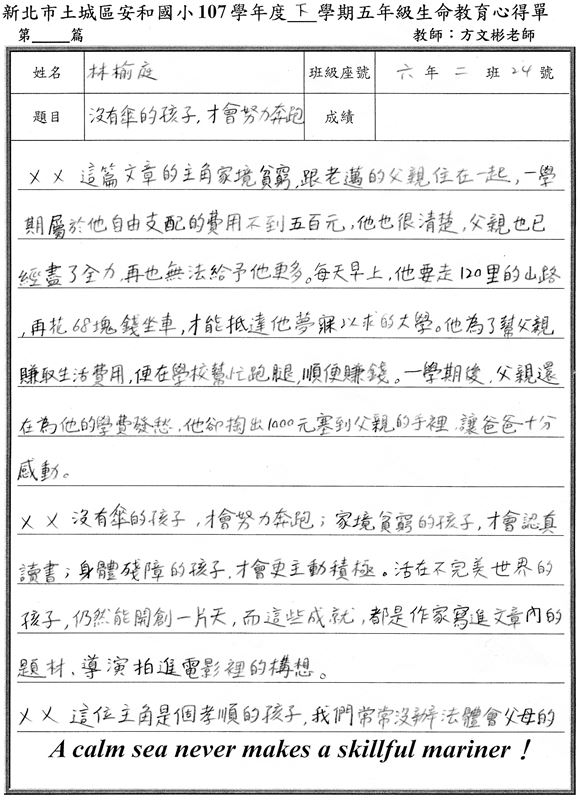 新北市土城區安和國小107學年度下學期五年級生命教育心得單
第____篇 教師：方文彬老師
姓名 林榆庭 班級座號 六年二班24號
題目 沒有傘的孩子，才會努力奔跑 成績
×× 這篇文章的主角家境貧窮，跟老邁的父親住在一起，一學
期屬於他自由支配的費用不到五百元，他也很清楚，父親也已
經盡了全力，再也無法給予他更多。每天早上，他要走120里的山路
，再花68塊錢坐車，才能抵達他夢寐以求的大學。他為了幫父親
賺取生活費用，便在學校幫忙跑腿，順便賺錢。一學期後，父親還
在為他的學費發愁，他卻掏出1000元塞到父親的手裡，讓爸爸十分
感動。
×× 沒有傘的孩子，才會努力奔跑；家境貧窮的孩子，才會認真
讀書；身體殘障的孩子，才會更主動積極。活在不完美世界的
孩子，仍然能開創一片天，而這些成就，都是作家寫進文章內的
題材、導演拍進電影裡的構想。
×× 這位主角是個孝順的孩子，我們常常沒辦法體會父母的
A calm sea never makes a skillful mariner！